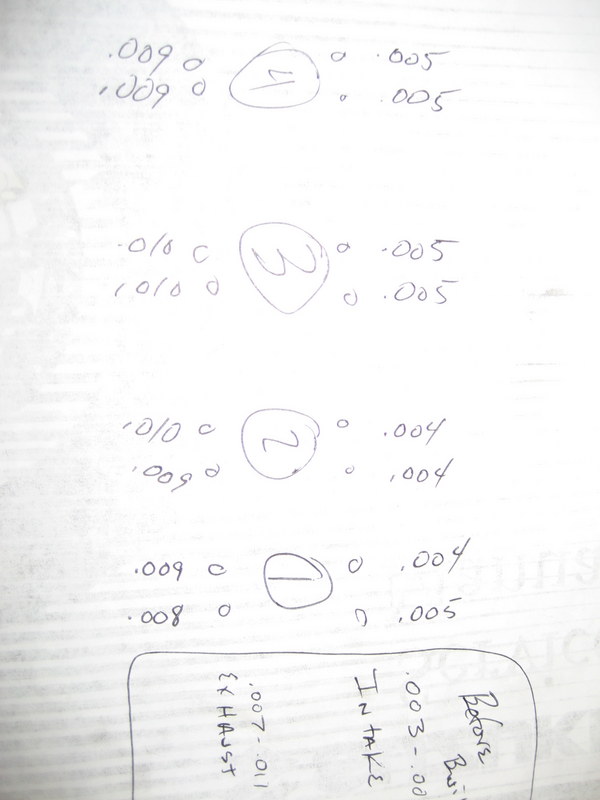 .009 4 .005
.009 .005
.010 3 .005
.010 .005
.010 2 .004
.009 .004
.009 1 .004
.008 .005
Before
.003-.00
INTAKE
.007-.011
EXHAUST